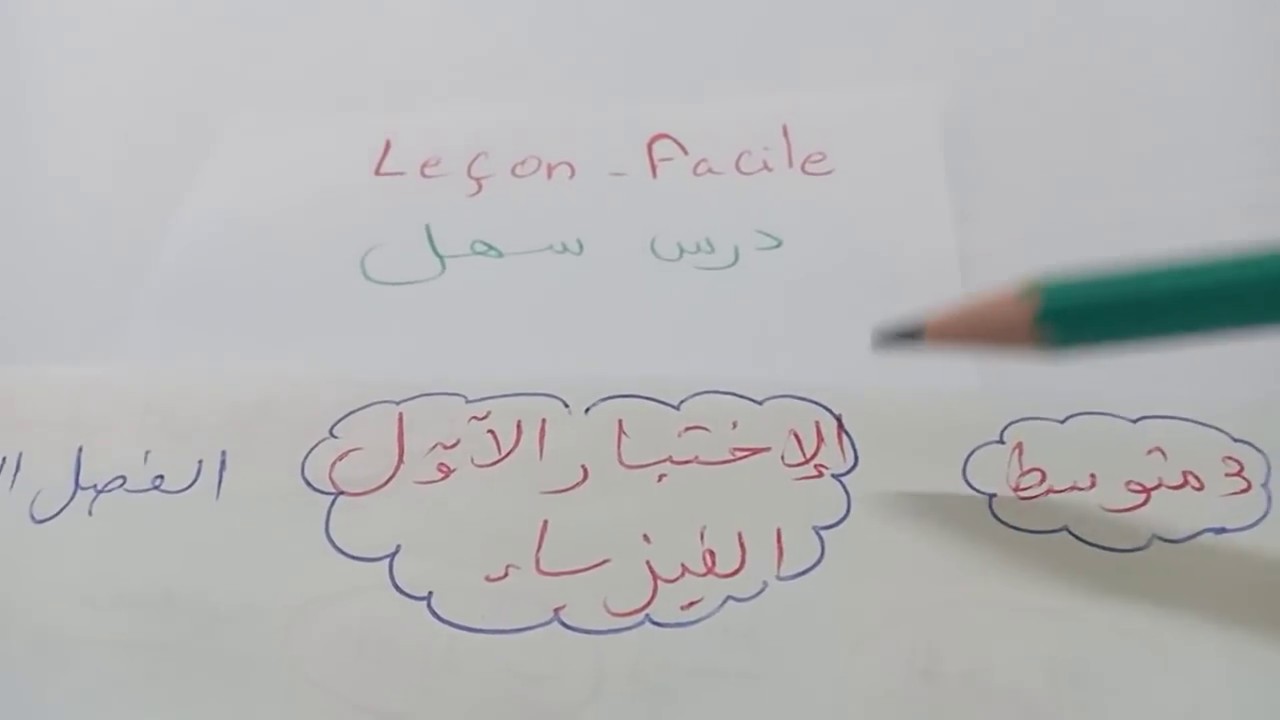 Leçon - Facile
درس سهل
3 متوسط
الإختبار الآوّل
الفيزياء
الفصل